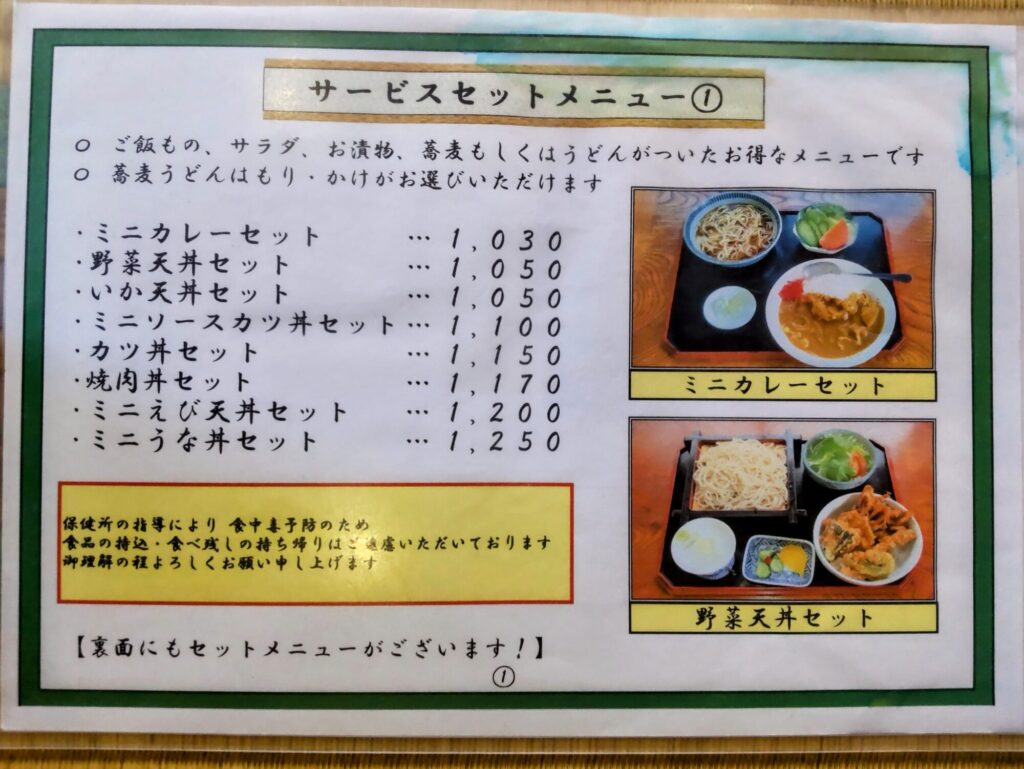 サービスセットメニュー①
○ ご飯もの、サラダ、お漬物、蕎麦もしくはうどんがついたお得なメニューです
○ 蕎麦うどんはもり・かけがお選びいただけます
・ミニカレーセット … 1,030
・野菜天丼セット … 1,050
・いか天丼セット … 1,050
・ミニソースカツ丼セット … 1,100
・カツ丼セット … 1,150
・焼肉丼セット … 1,170
・ミニえび天丼セット … 1,200
・ミニうな丼セット … 1,250
ミニカレーセット
野菜天丼セット
保健所の指導により 食中毒予防のため
食品の持込・食べ残しの持ち帰りはご遠慮いただいております
御理解の程よろしくお願い申し上げます
【裏面にもセットメニューがございます！】
①